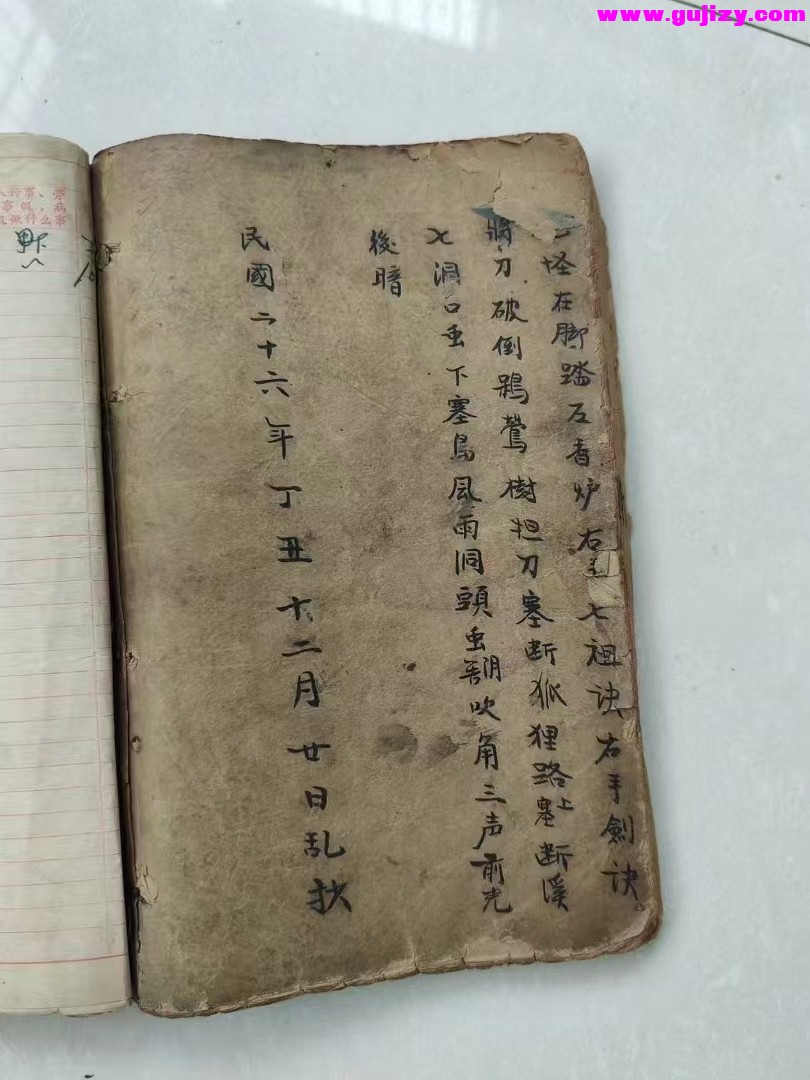 www.gujizy.com
怪在脚踏左香炉右手七祖诀右手劍诀
將刀破倒鵶鶯樹担刀塞断狐狸路上塞断溪
七洞口垂下塞烏風雨洞頭垂吹角三声前光
後暗
民國二十六年丁丑十二月廿日乱抄
什么事